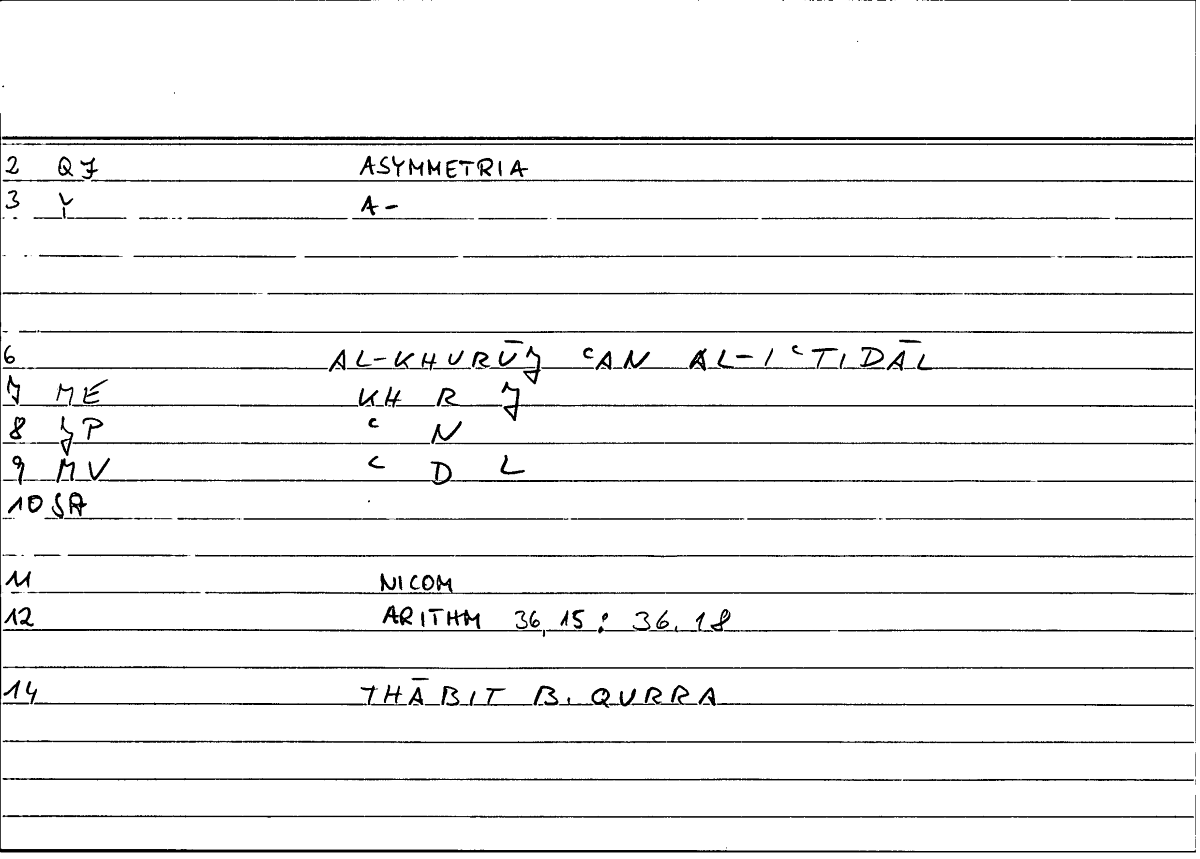 2 QJ ASYMMETRIA
3 Y A-
6 AL-KHURŪJ ʿAN AL-IʿTIDĀL
7 ME KH R J
8 JP ʿ N
9 MV ʿ D L
10 SA
11 NICOM
12 ARITHM 36,15: 36.18
14 THĀBIT B. QURRA